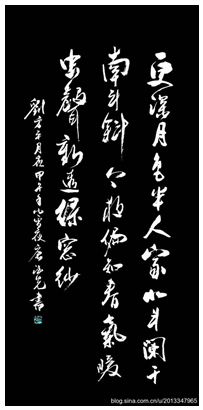 更深月色半人家北斗阑干
南斗斜今夜偏知春气暖
虫声新透绿窗纱
刘方平月夜甲午年
blog.sina.com.cn/u/2013347965